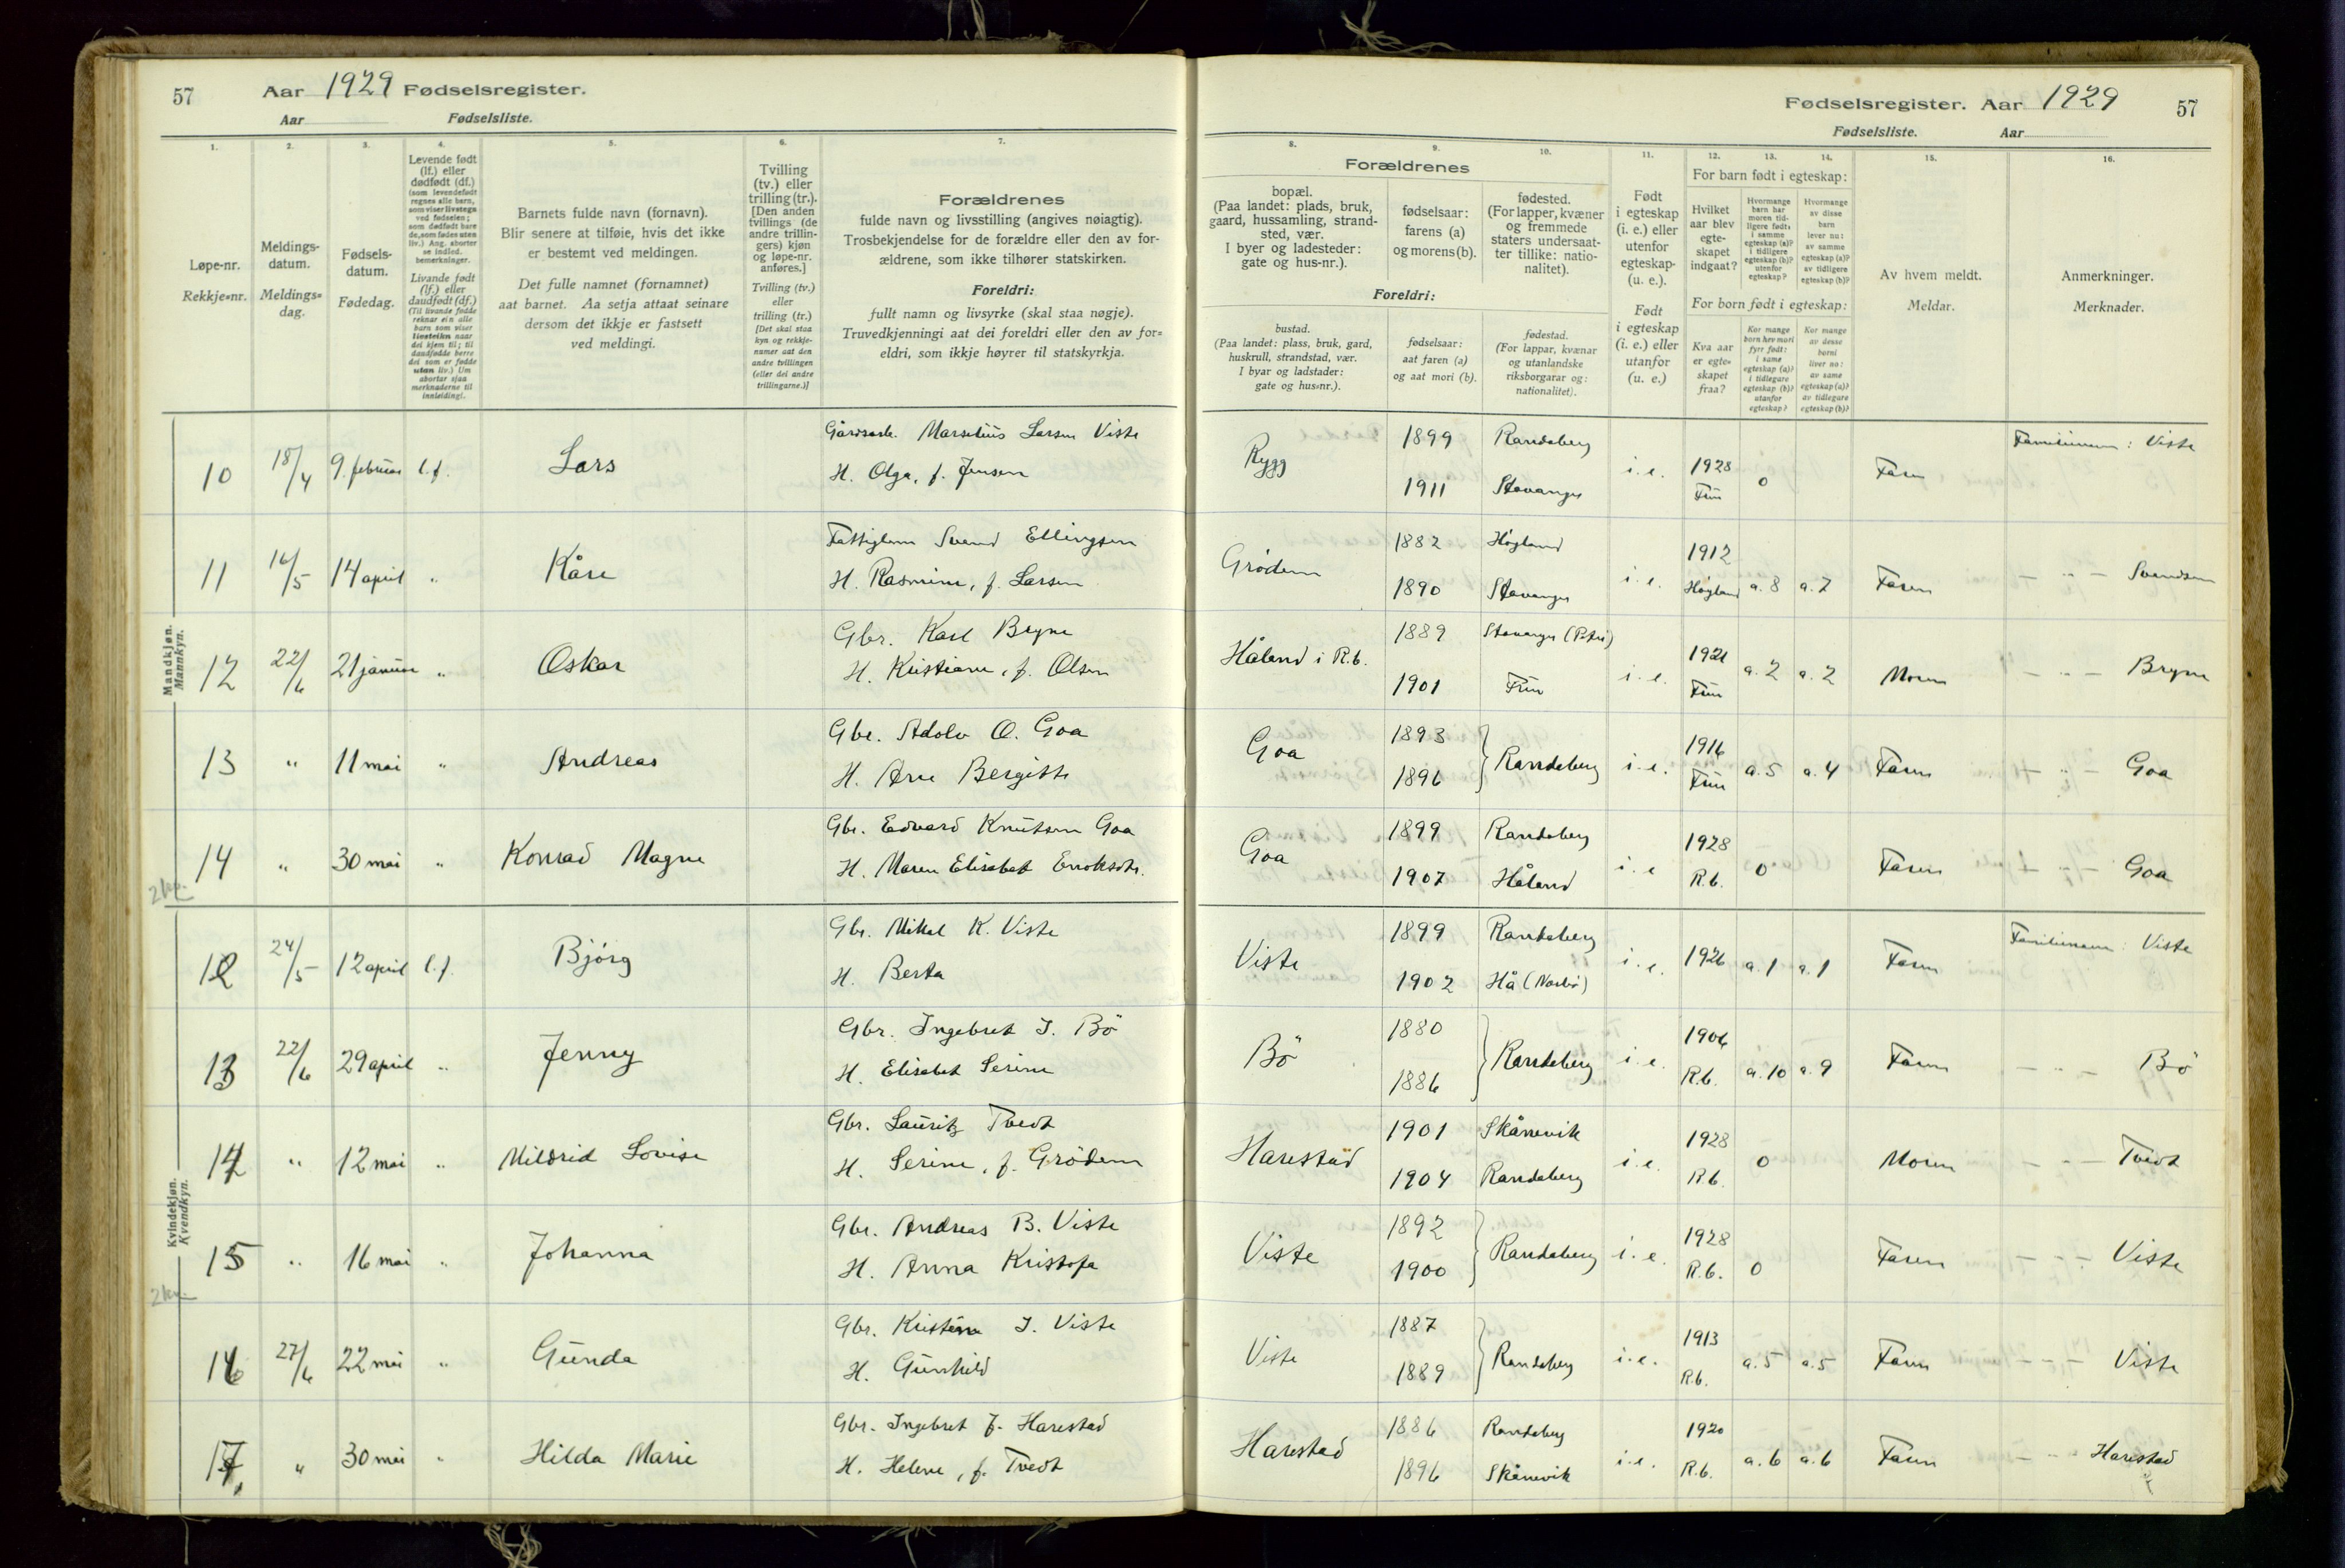 57 Aar 1929 Fødselsregister.
Aar Fødselsliste.
Fødselsregister. Aar 1929 57
Fødselsliste. Aar
1.
Løpe-nr.
Rekkje=nr.
2.
Meldings-
datum.
Meldings=
dag.
3.
Fødsels-
datum.
Fødedag.
4.
Levende født
(lf.) eller
dødfødt (df.)
(som levendefødt
regnes alle barn,
som viser livstegn
ved fødselen;
som dødfødt bare
de, som fødes uten
liv.) Ang. aborter
se indled.
bemerkninger.
Livande født
(lf.) eller
daudfødt (df.)
(Til livande fødde
reknar ein alle
barn som viser
livsteikn naar
dei kjem til; til
daudfødde berre
dei som er fødde
utan liv.) Um
abortar sjaa
merknaderne til
innleidingi.
5.
Barnets fulde navn (fornavn).
Blir senere at tilføie, hvis det ikke
er bestemt ved meldingen.
Det fulle namnet (fornamnet)
aat barnet. Aa setja attaat seinare
dersom det ikkje er fastsett
ved meldingi.
6.
Tvilling
(tv.) eller
trilling (tr.).
[Den anden
tvillings (de
andre trillin-
gers) kjøn
og løpe-nr.
anføres.]
Tvilling (tv.)
eller
trilling (tr.)
[Det skal staa
kyn og rekkje-
numer aat den
andre tvillingen
(eller dei andre
trillingarne.)]
7.
Forældrenes
fulde navn og livsstilling (angives nøiagtig).
Trosbekjendelse for de forældre eller den av for-
ældrene, som ikke tilhører statskirken.
Foreldri:
fullt namn og livsyrke (skal staa nøgje).
Truvedkjenningi aat dei foreldri eller den av for=
eldri, som ikkje høyrer til statskyrkja.
8. 9. 10.
Forældrenes
bopæl.
(Paa landet: plads, bruk,
gaard, hussamling, strand-
sted, vær.
I byer og ladesteder:
gate og hus-nr.).
fødselsaar:
farens (a)
og morens (b).
fødested.
(For lapper, kvæner
og fremmede
staters undersaat-
ter tillike: natio-
nalitet).
Foreldri:
bustad.
(Paa landet: plass, bruk, gard,
huskrull, strandstad, vær.
I byar og ladstader:
gate og hus=nr.).
fødselsaar:
aat faren (a)
og aat mori (b).
fødestad.
(For lappar, kvænar
og utanlandske
riksborgarar og:
nationalitet).
11.
Født
i egteskap
(i. e.) eller
utenfor
egteskap-
(u. e.).
Født
i egteskap
(i. e.) eller
utanfor
(u. e.)
12. 13. 14.
For barn født i egteskap:
Hvilket
aar blev
egte-
skapet
indgaat?
Hvormange
barn har
moren tid-
ligere født:
i samme
egteskap (a)?
i tidligere
egteskap (b)?
utenfor
egteskap?
Hvormange
av disse
barn
lever nu:
av samme
egteskap (a)?
av tidligere
egteskap (b)?
For born født i egteskap:
Kva aar
er egte=
skapet
fraa?
Kor mange
born hev mori
fyrr født:
i same
egteskap (a)?
i tidlegare
egteskap (b)?
utanfor
egteskap?
Kor mange
av desse
borni
liver no:
av same
egteskap (a)?
av tidlegare
egteskap (b)?
15.
Av hvem meldt.
Meldar.
16.
Anmerkninger.
Merknader.
Mandkjøn.
Mannkyn.
10 18/4 9. februar l.f. Lars Gårdsarb. Marselius Larsen Viste Rygg 1899 Randaberg i.e. 1928 0 Faren Familienavn: Viste
H. Olga, f. Jensen 1911 Stavanger Frue
11 16/5 14 april " Kåre Svend Ellingsen Grødem 1882 Høgland i.e. 1912 a.8 a.7 Faren - " - Svendsen
H. Rasmine, f. Larsen 1890 Stavanger Høgland
12 22/6 21 januar " Oskar Gbr. Karl Bryne Håland i R.b. 1889 Stavanger (Petri) i.e. 1921 a.2 a.2 Moren - " - Bryne
H. Kristiane, f. Olsen 1901 Frue Frue
13 " 11 mai " Andreas Gbr. Adolv O. Goa Goa 1893 Randaberg i.e. 1916 a.5 a.4 Faren - " - Goa
H. Ane Bergitte 1896 Frue
14 " 30 mai " Konrad Magne Gbr. Edvard Knutsen Goa Goa 1899 Randaberg i.e. 1928 0 Faren - " - Goa
H. Maren Elisabet Enoksdtr. 1907 Håland R.b.
2 kv.
Kvindekjøn.
Kvendkyn.
12 24/5 12 april l.f. Bjørg Gbr. Mikal K. Viste Viste 1899 Randaberg i.e. 1926 a.1 a.1 Faren Familienavn: Viste
H. Berta 1902 Hå (Nærbø)
13 22/6 29 april " Jenny Gbr. Ingebret I. Bö Bö 1880 Randaberg i.e. 1906 a.10 a.9 Faren - " - Bö
H. Elisabet Serine 1886 R.b.
14 " 12 mai " Mildrid Lovise Gbr. Lauritz Tvedt Harestad 1901 Skånevik i.e. 1928 0 Moren - " - Tvedt
H. Serine, f. Grödem 1904 Randaberg R.b.
15 " 16 mai " Johanna Gbr. Andreas B. Viste Viste 1892 Randaberg i.e. 1928 0 Faren - " - Viste
H. Anna Kristofa 1900 R.b.
2 kv.
16 27/6 22 mai " Gunda Gbr. I. Viste Viste 1887 Randaberg i.e. 1913 a.5 a.5 Faren - " - Viste
H. Gunhild 1889 R.b.
17 " 30 mai " Hilda Marie Gbr. Ingebret J. Harestad Harestad 1886 Randaberg i.e. 1920 a.6 a.6 Faren - " - Harestad
H. Helene, f. Tvedt 1896 Skånevik R.b.